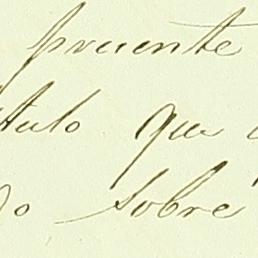 presente
tulo que
do sobre